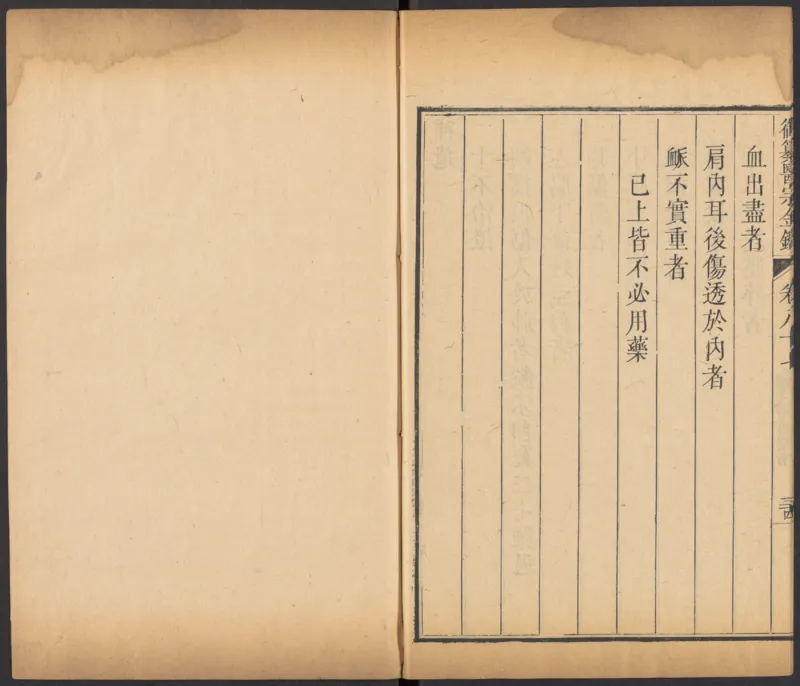 御纂醫宗金鑑 卷八十七 三四
血出盡者
肩內耳後傷透於內者
脈不實重者
已上皆不必用藥